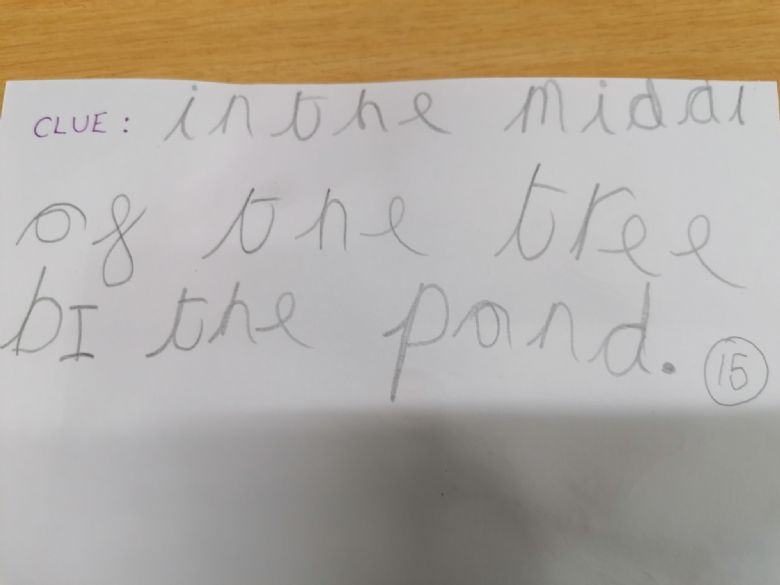 CLUE: in the middl
of the tree
bI the pond.
15